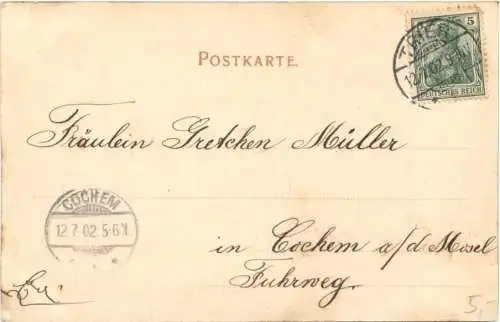 5
TRIER
12.7.02.9-
DEUTSCHES REICH
POSTKARTE.
Fräulein Gretchen Müller
COCHEM
12.7.02 5-6N
in Cochem a/d Mosel
Fuhrweg.
5,-